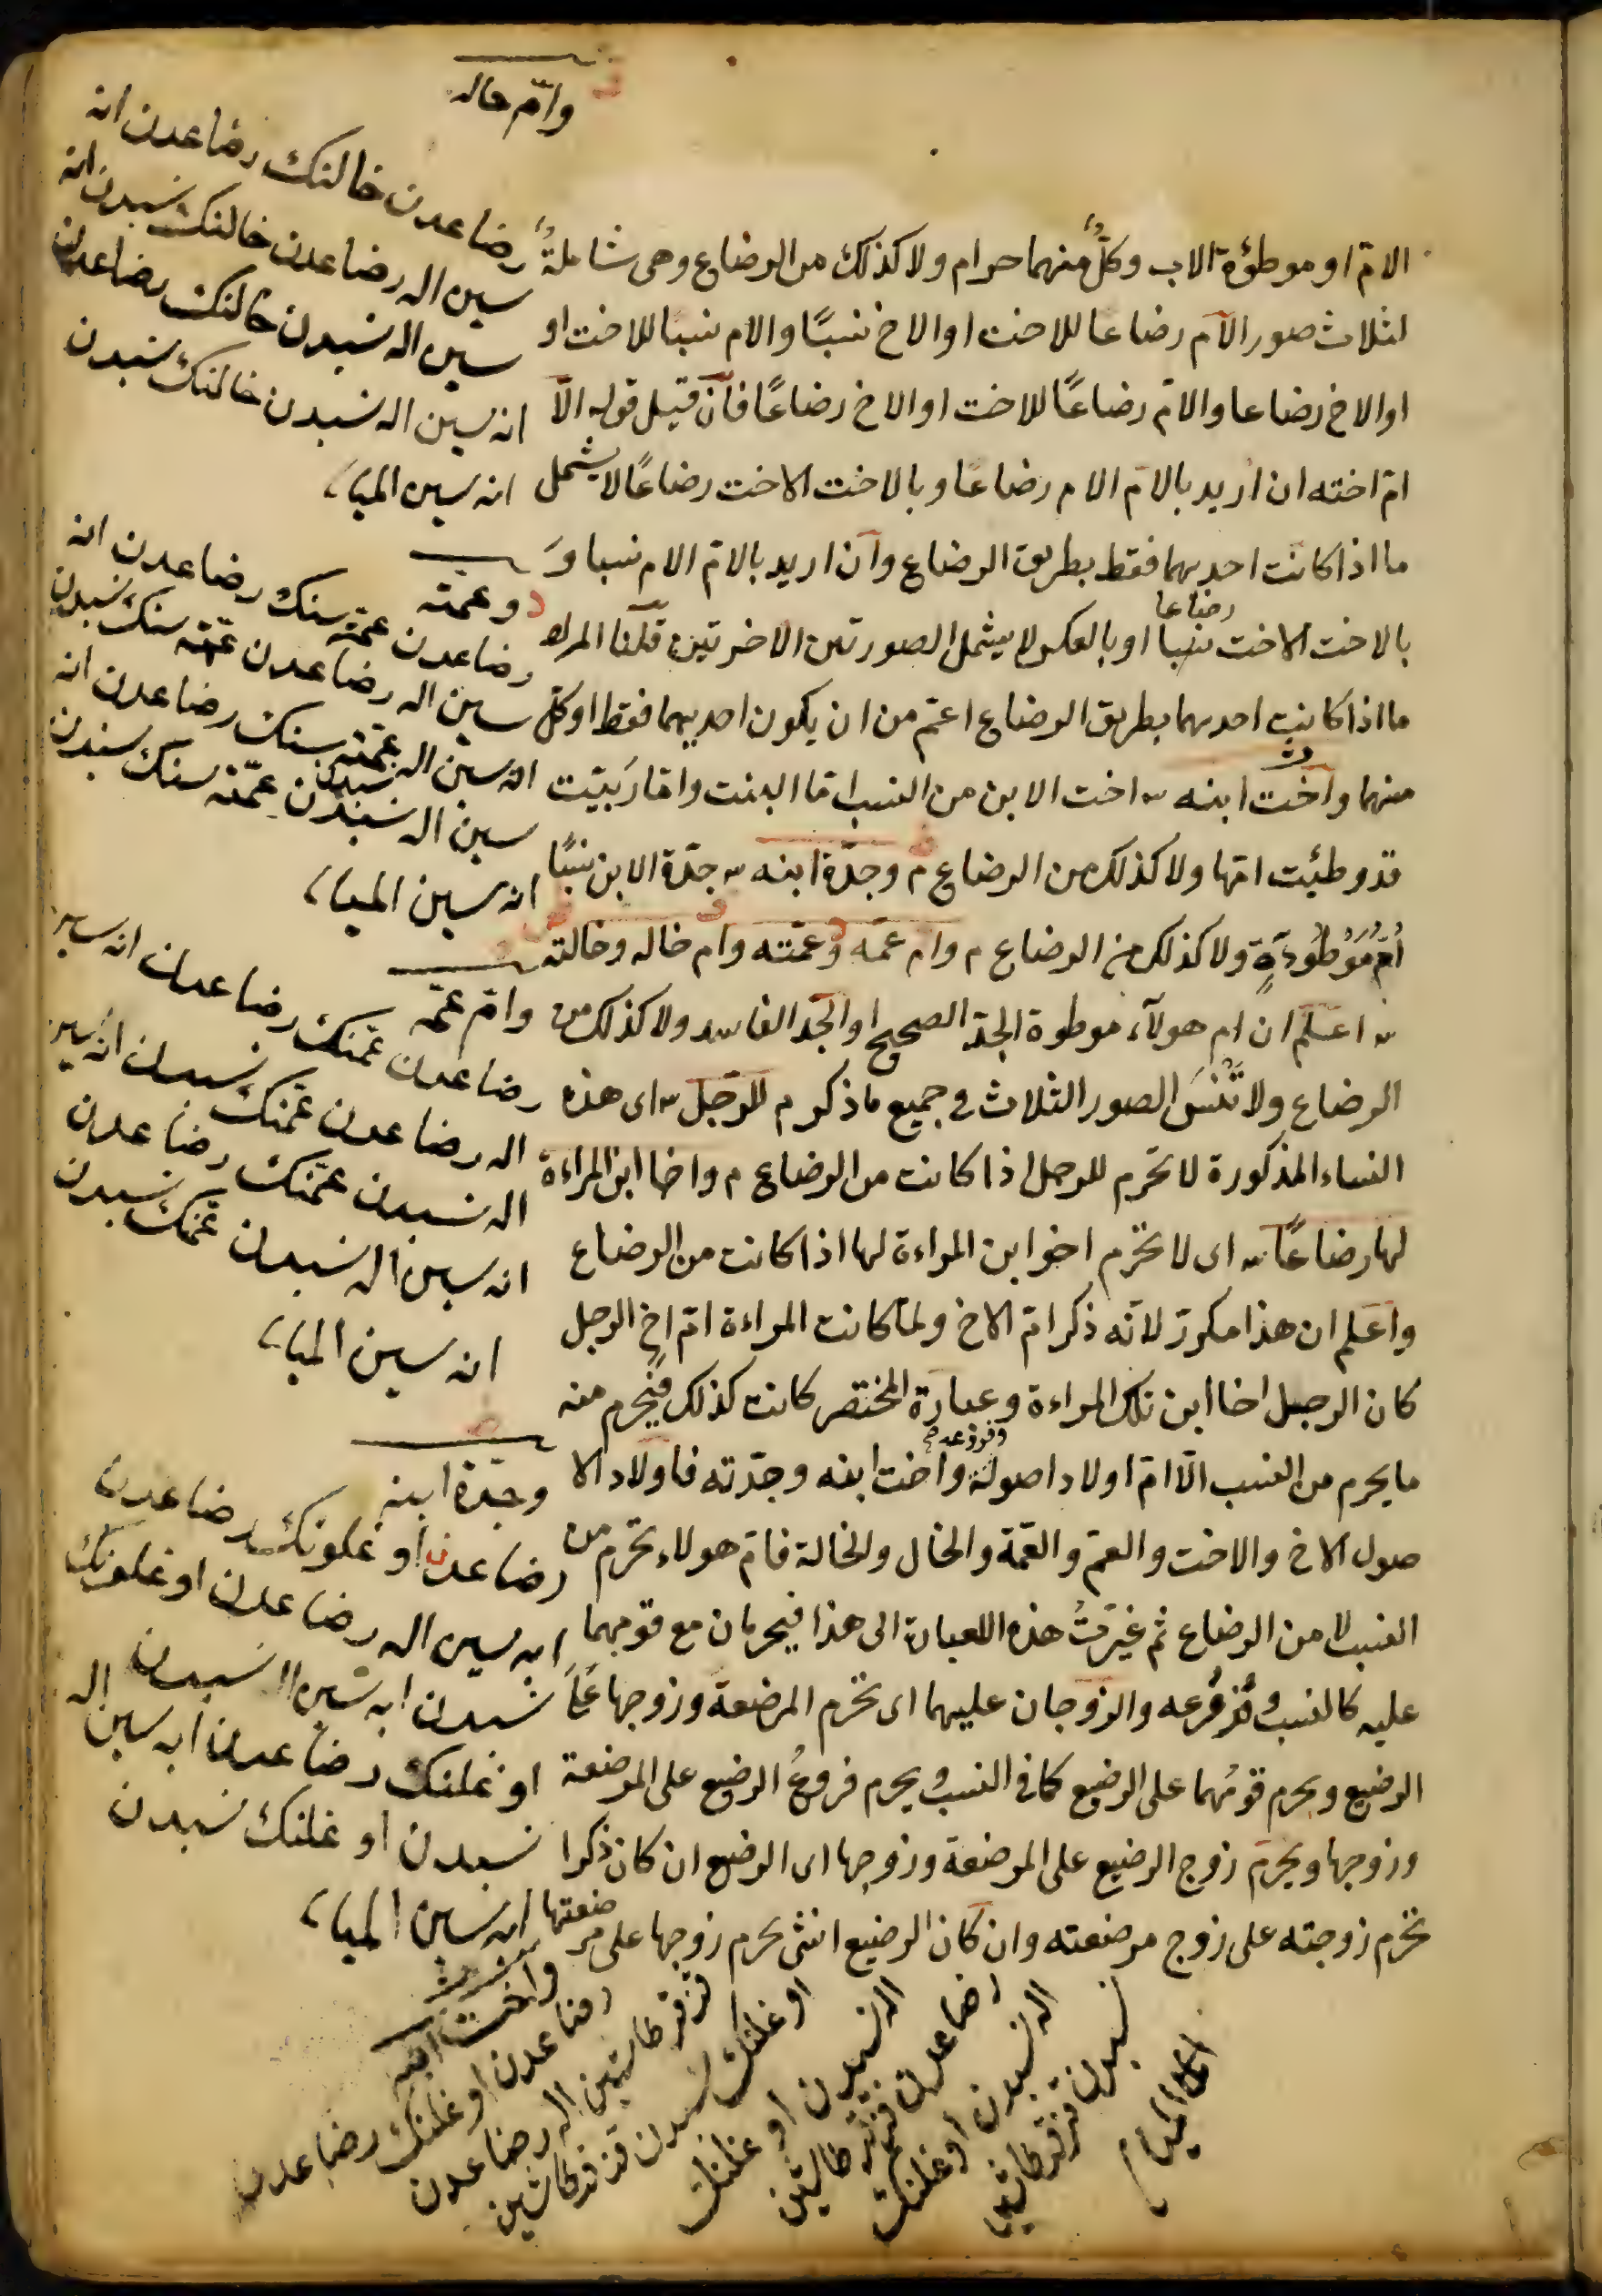 الامّ او موطؤة الاب وكلٌّ منهما حرام ولا كذلك من الرضاع وهى شاملةٌ
لثلاث صور الام رضاعا للاخت او الاخ نسبًا والام نسبا للاخت او
او الاخ رضاعا والامّ رضاعًا للاخت او الاخ رضاعًا فان قيل قوله الّا
امّ اخته ان اريد بالامّ الام رضاعًا وبالاخت الاخت رضاعًا لا يشمل
ما اذا كانت احديهما فقط بطريق الرضاع وان اريد بالامّ الام نسبا وَ
رضاعا
بالاخت الاخت نسبا او بالعكس لا يشمل الصورتين الاخرتين قلنا المراد
ما اذا كانت احديهما بطريق الرضاع اعمّ من ان يكون احديهما فقط او كلّ
منهما واخت ابنه اخت الابن من النسب امّا البنت وامّا ربيّت
قد وطئت امّها ولا كذلك من الرضاع م وجدّة ابنه جدّة الابن نسبًا
اُمُّ مَوْطُوءَةٍ ولا كذلك من الرضاع م وامّ عمّه وعمّته وامّ خاله وخالته
اعلم ان ام هولآء موطوة الجدّ الصحيح او الجدّ الفاسد ولا كذلك من
الرضاع ولا تَنْسَ الصور الثلاث فى جميع ما ذكر م للرّجل اى هذه
النساء المذكورة لا تحرم للرجل اذا كانت من الرضاع م واخا ابن المراءة
لها رضاعًا اى لا تحرم اخو ابن المراءة لها اذا كانت من الرضاع
واعلم ان هذا مكرّر لانّه ذكر امّ الاخ ولمّا كانت المراءة امّ اخ الرجل
كان الرجل اخا ابن تلك المراءة وعبارة المختصر كانت كذلك فيحرم منه
ما يحرم من النسب الّا امّ اولاد اصوله واخت ابنه وجدّته فاولاد الا
صول الاخ والاخت والعمّ والعمّة والخال والخالة فامّ هولاء تحرم من
النسب لا من الرضاع ثم غيّرتُ هذه العبارة الى هذا فيحرمان مع قومهما
عليه كالنسب وفرعه والزّوجان عليهما اى تحرم المرضعة وزوجها عَلَى
الرضيع ويحرم قومُهما على الرضيع كما فى النسب ويحرم فروعُ الرضيع على المرضعة
وزوجها ويحرم زوج الرضيع على المرضعة وزوجها اى الرضيع ان كان ذكرا
تحرم زوجته على زوج مرضعته وان كان الرضيع انثى يحرم زوجها على مر
ضعتها
وامّ خاله
رضاعدن خالنك رضاعدن انه
سين اله رضاعدن خالنك نسبدن انه
سين اله نسبدن خالنك رضاعدن
انه سين اله نسبدن خالنك نسبدن
انه سين الميا
وعمّته
رضاعدن عمّه سنك رضاعدن انه
سين اله رضاعدن عمّه سنك نسبدن
انه سين اله نسبدن عمّه سنك رضاعدن انه
سين اله نسبدن عمّه سنك نسبدن
انه سين الميا
وامّ عمّه
رضاعدن عمّنك رضاعدن انه سين
اله رضاعدن عمّنك نسبدن انه سين
اله نسبدن عمّنك رضاعدن
انه سين اله نسبدن عمّنك نسبدن
انه سين الميا
وجدّة ابنه
رضاعدن اوغلونك رضاعدن
ابه سين اله رضاعدن اوغلونك
نسبدن ابه سين اله نسبدن
اوغلنك رضاعدن ابه سين اله
نسبدن اوغلنك نسبدن
ابه سين الميا
واخت ابنه
رضاعدن اوغلنك رضاعدن
قز قرداشين اله رضاعدن
اوغلنك نسبدن قز قرداشين
اله نسبدن اوغلنك
رضاعدن قز قرداشين
اله نسبدن اوغلنك
نسبدن قز قرداشين